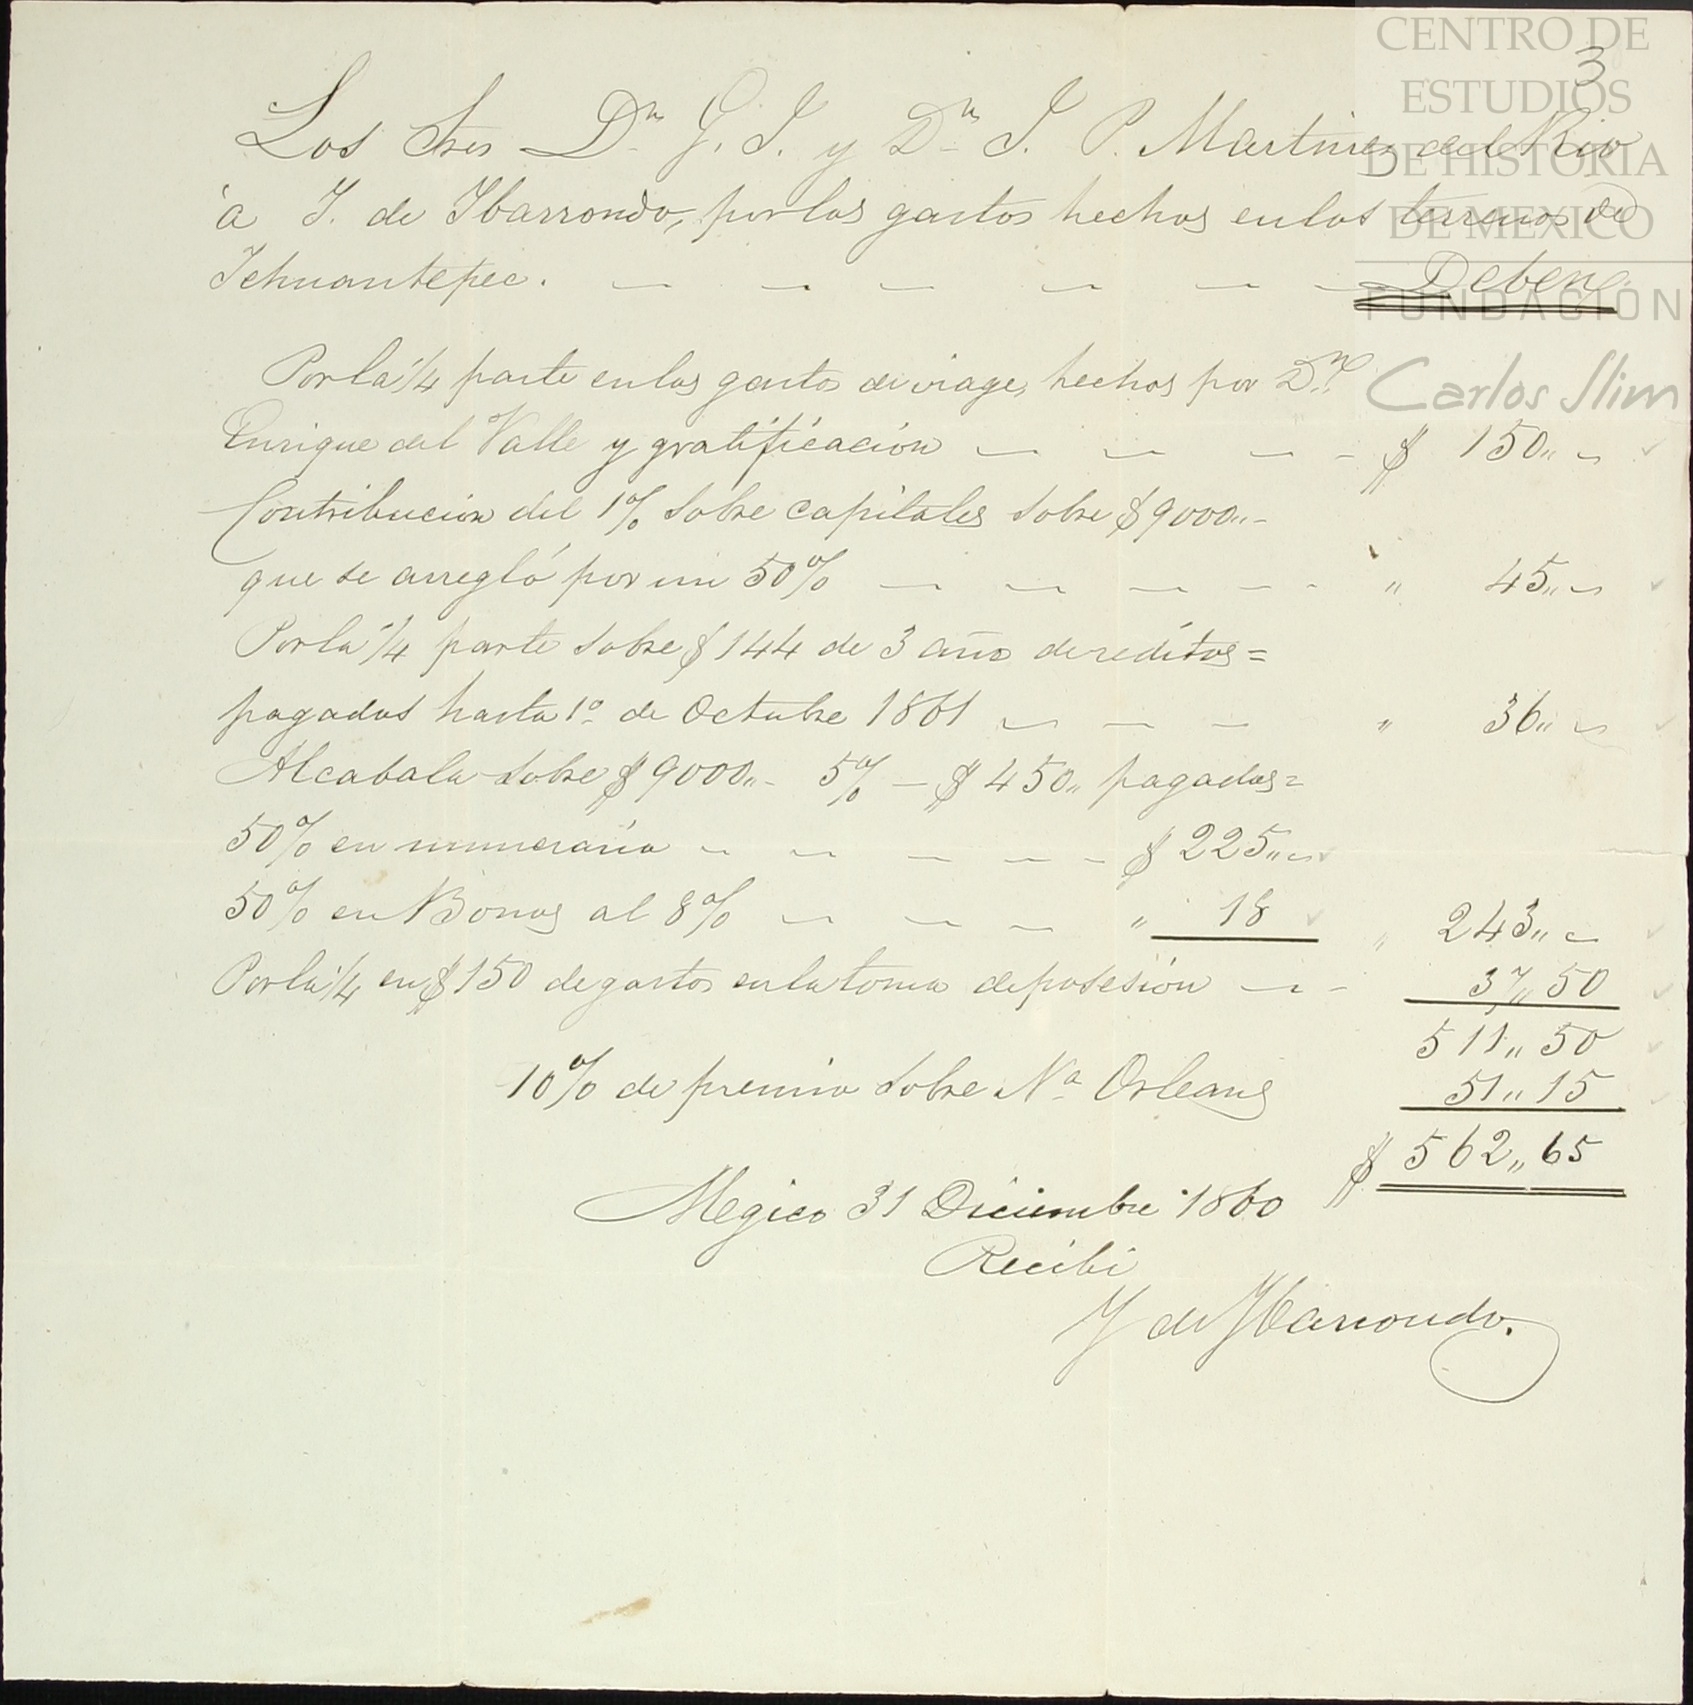 CENTRO DE
ESTUDIOS
DE HISTORIA
DE MEXICO
FUNDACIÓN
Carlos Slim
3
Los Sres Dn G. J. y Dn J. P. Martinez del Rio
à Y. de Ybarrondo, por los gastos hechos en los terrenos de
Tehuantepec. Deben
Por la 1/4 parte en los gastos de viage, hechos por Dn
Enrique del Valle y gratificación $ 150,,
Contribucion del 1% sobre capitales sobre $9000,,
que se arregló por un 50% ,, 45,,
Por la 1/4 parte sobre $144 de 3 año de reditos=
pagados hasta 1o de Octubre 1861 ,, 36,,
Alcabala sobre $9000,,- 5% - $450,, pagados=
50% en numerario $225,,
50% en Bonos al 8% ,, 18 ,, 243,,
Por la 1/4 en $150 de gastos en la toma de posesión 37,,50
511,,50
10% de premio sobre Na Orleans 51,,15
$ 562,,65
Megico 31 Diciembre 1860
Recibi
Y de Ybarrondo.